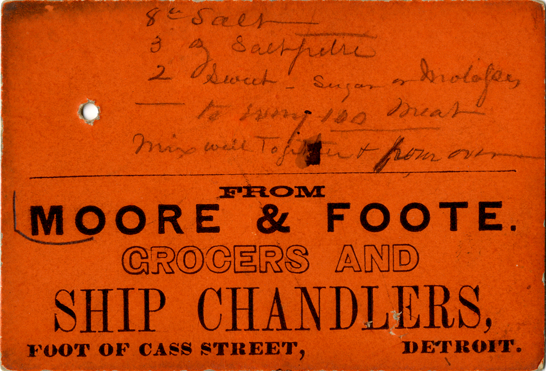 8 lb Salt
3 oz Saltpetre
2 Sweet - Sugar or Molasses
to every 100 Meat
Mix well Together & pour over
FROM
MOORE & FOOTE.
GROCERS AND
SHIP CHANDLERS,
FOOT OF CASS STREET, DETROIT.